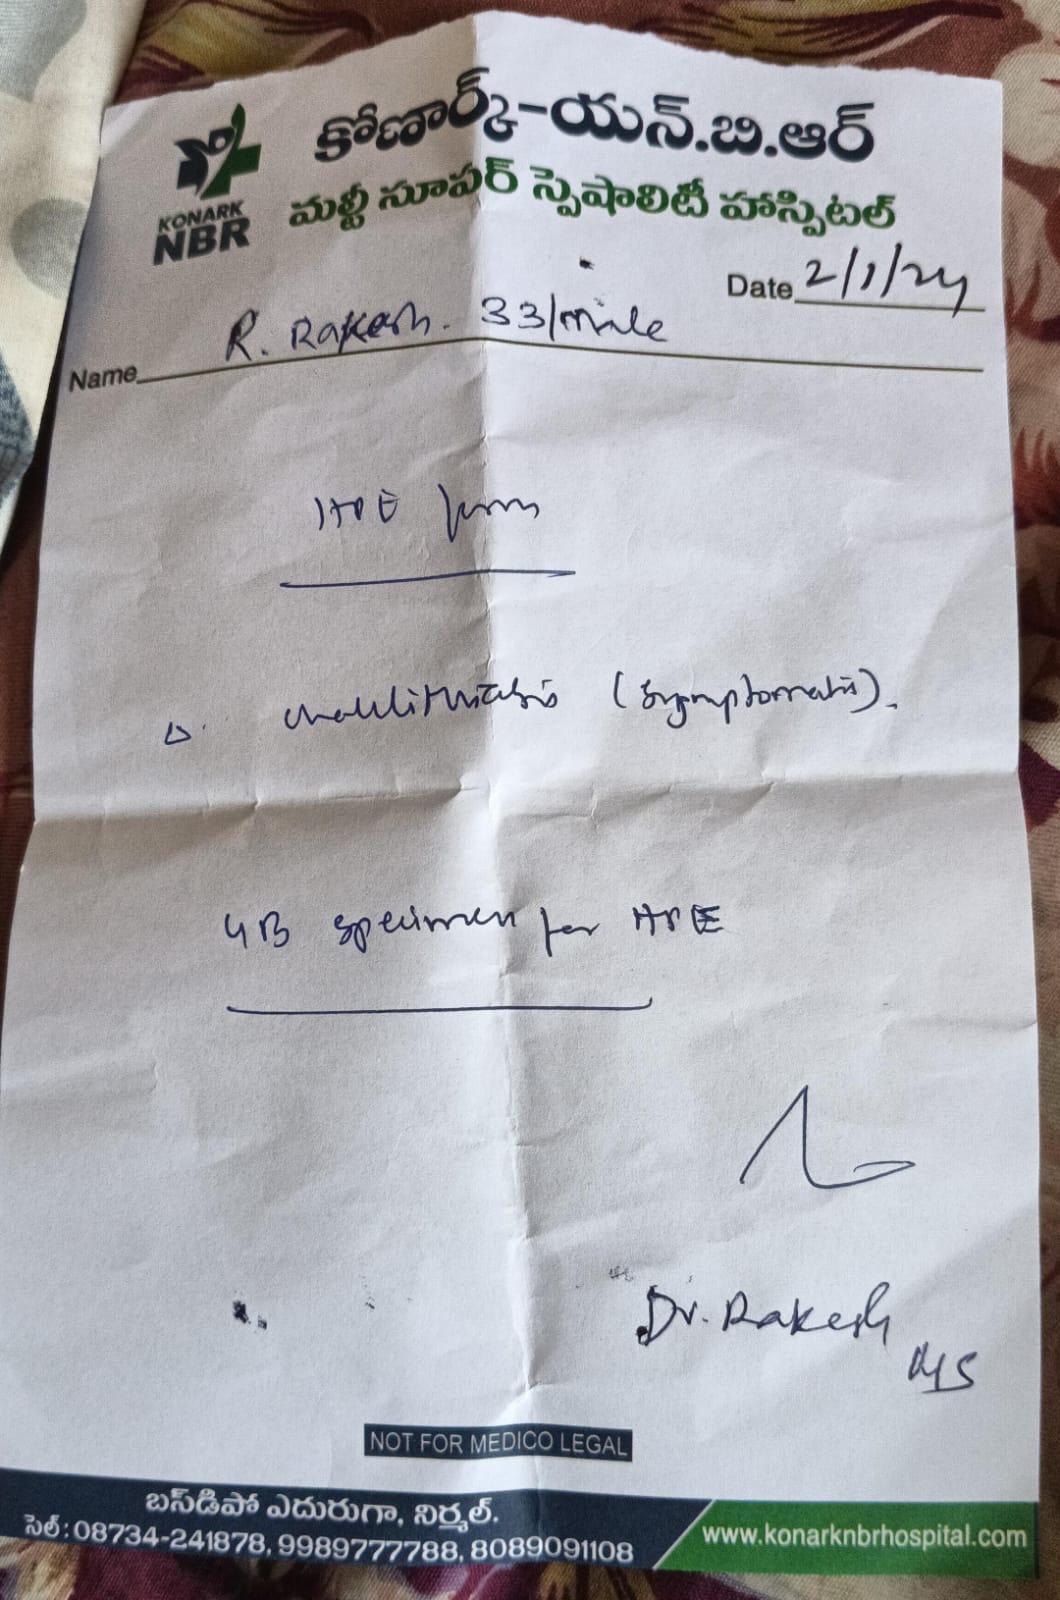 కోణార్క్-యన్.బి.ఆర్
మల్టీ సూపర్ స్పెషాలిటీ హాస్పిటల్
KONARK
NBR
Date 2/1/24
Name R. Rakesh. 33/male
HPE form
Δ. cholelithiasis (symptomatic).
GB specimen for HPE
Dr. Rakesh
MS
NOT FOR MEDICO LEGAL
బస్‌డిపో ఎదురుగా, నిర్మల్.
సెల్ : 08734-241878, 9989777788, 8089091108
www.konarknbrhospital.com